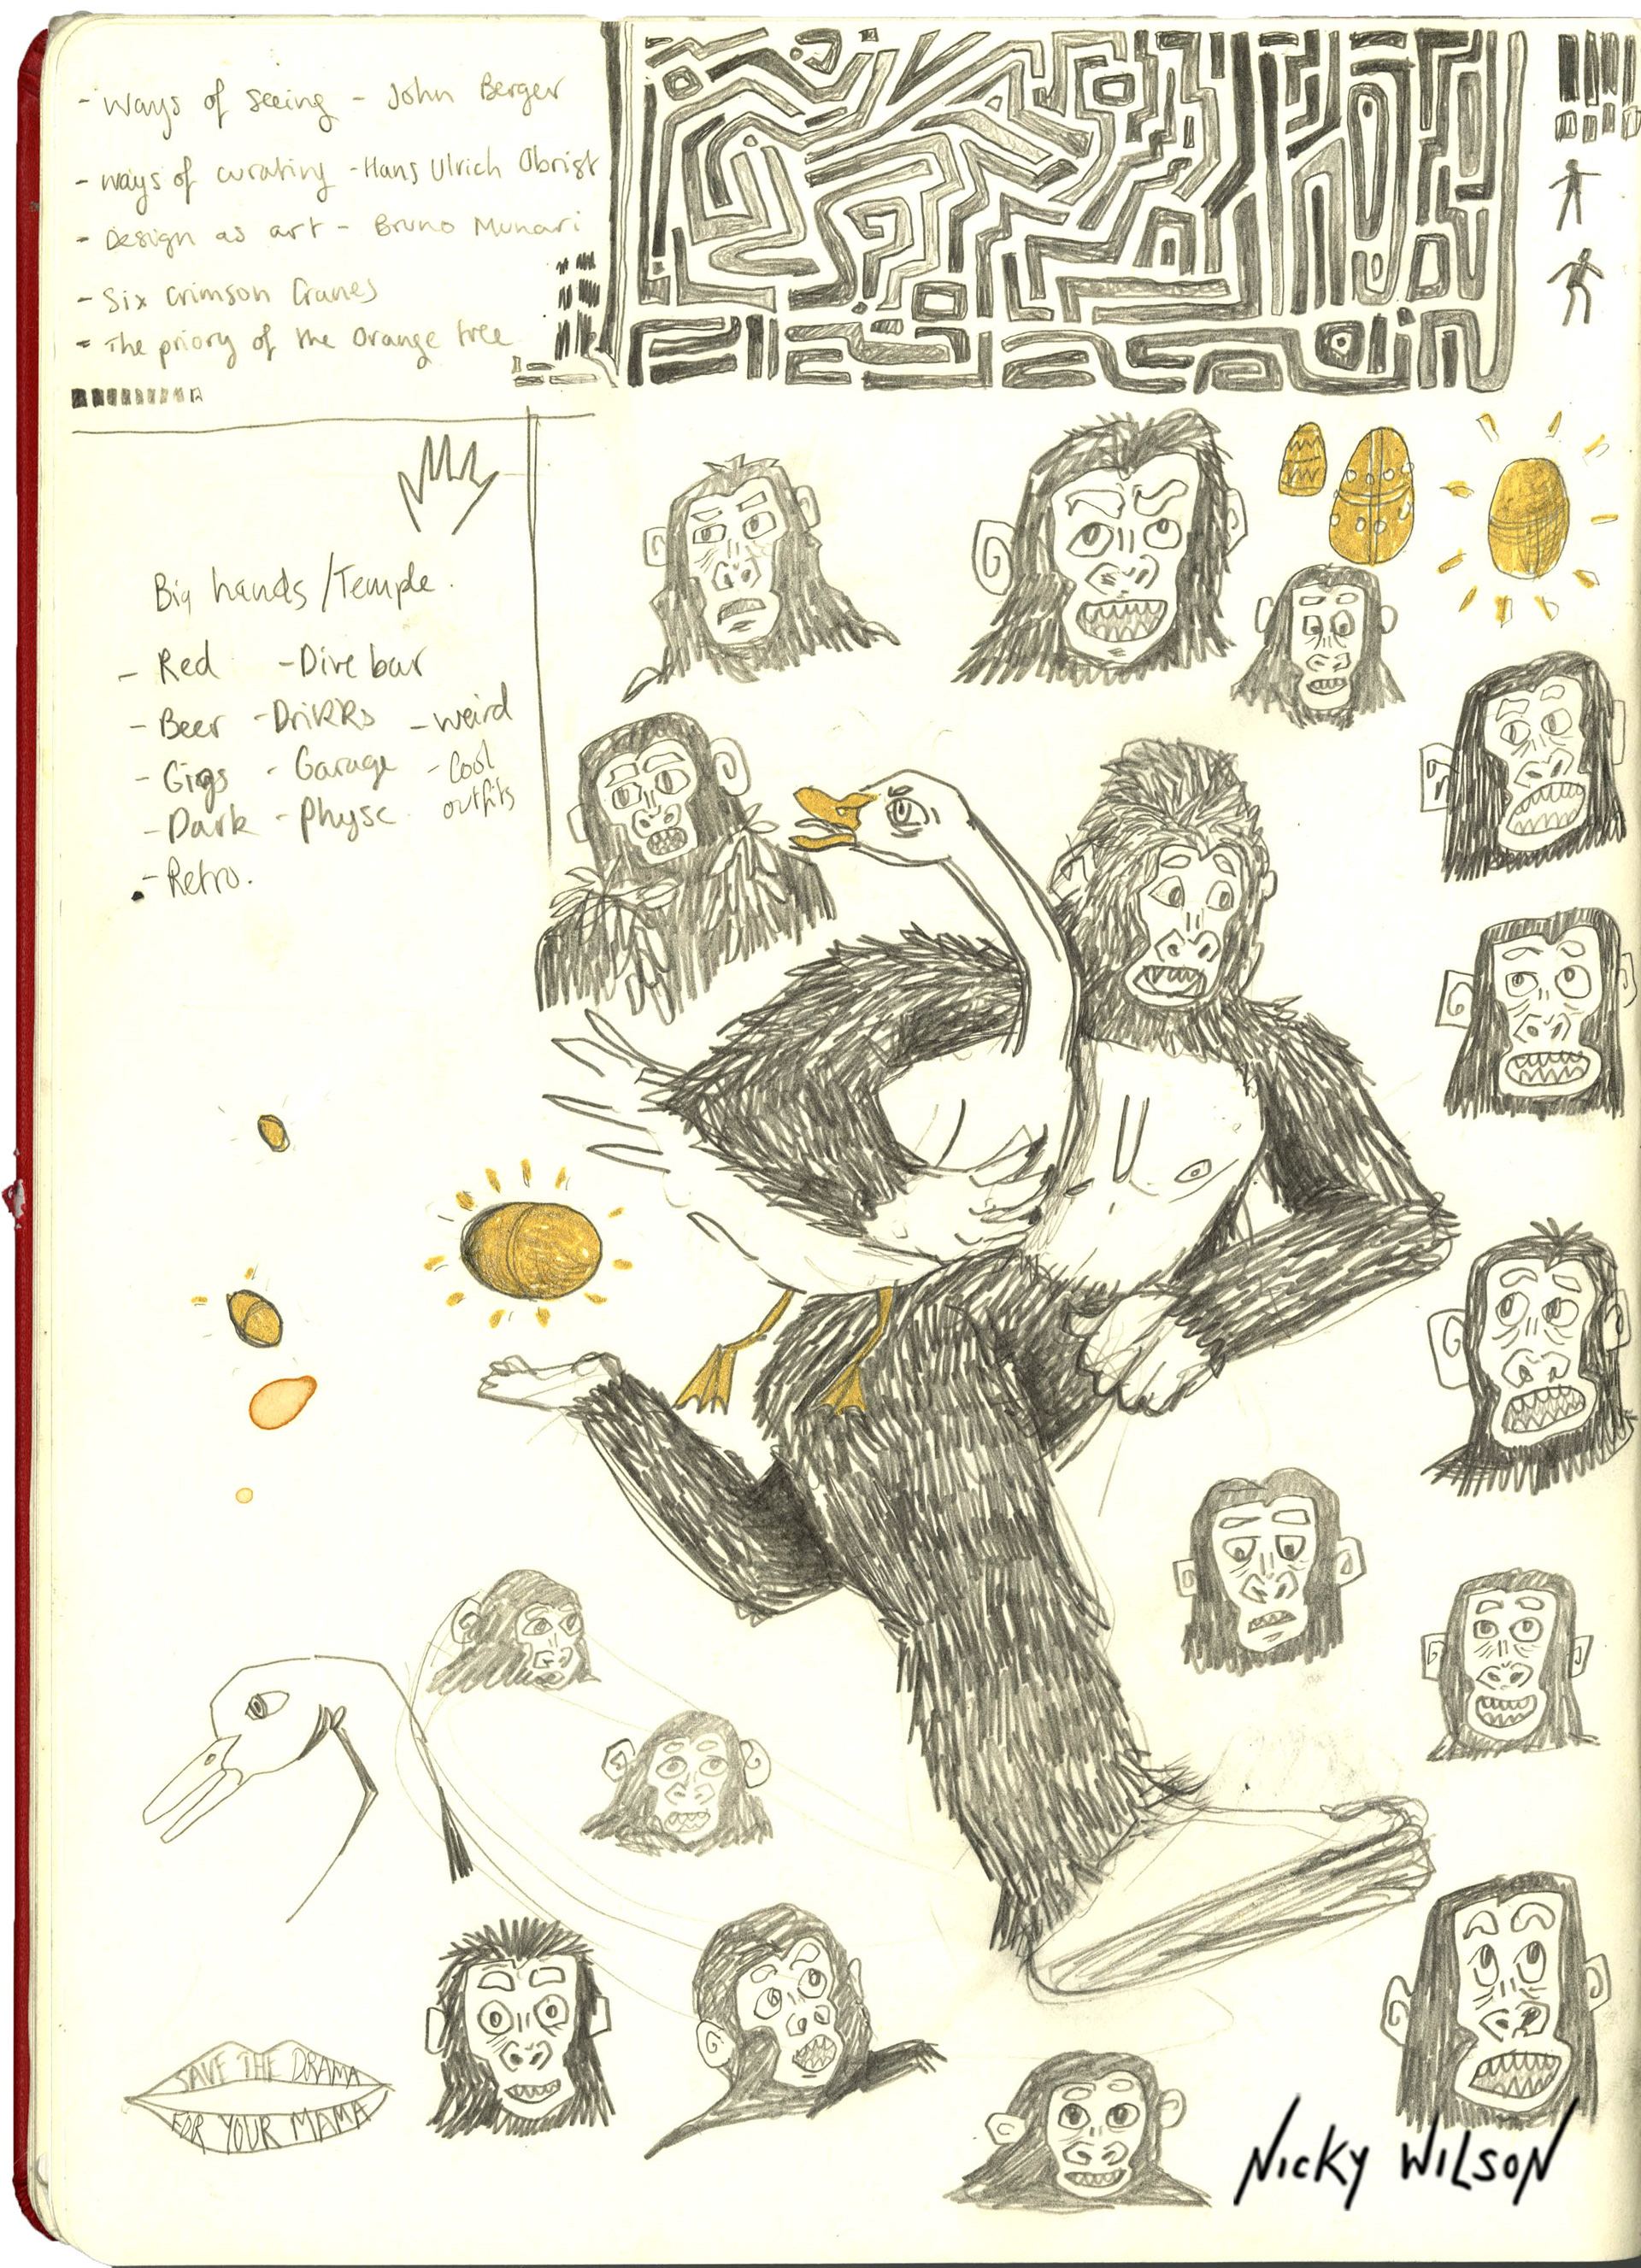 - Ways of seeing - John Berger
- ways of curating - Hans Ulrich Obrist
- Design as art - Bruno Munari
- Six Crimson Cranes
- The priory of the Orange tree
Big hands / Temple.
- Red - Dive bar
- Beer - DriKKs - weird
- Gigs - Garage - Cool
outfits
- Dark - Physc.
- Retro.
SAVE THE DRAMA
FOR YOUR MAMA
NICKY WILSON